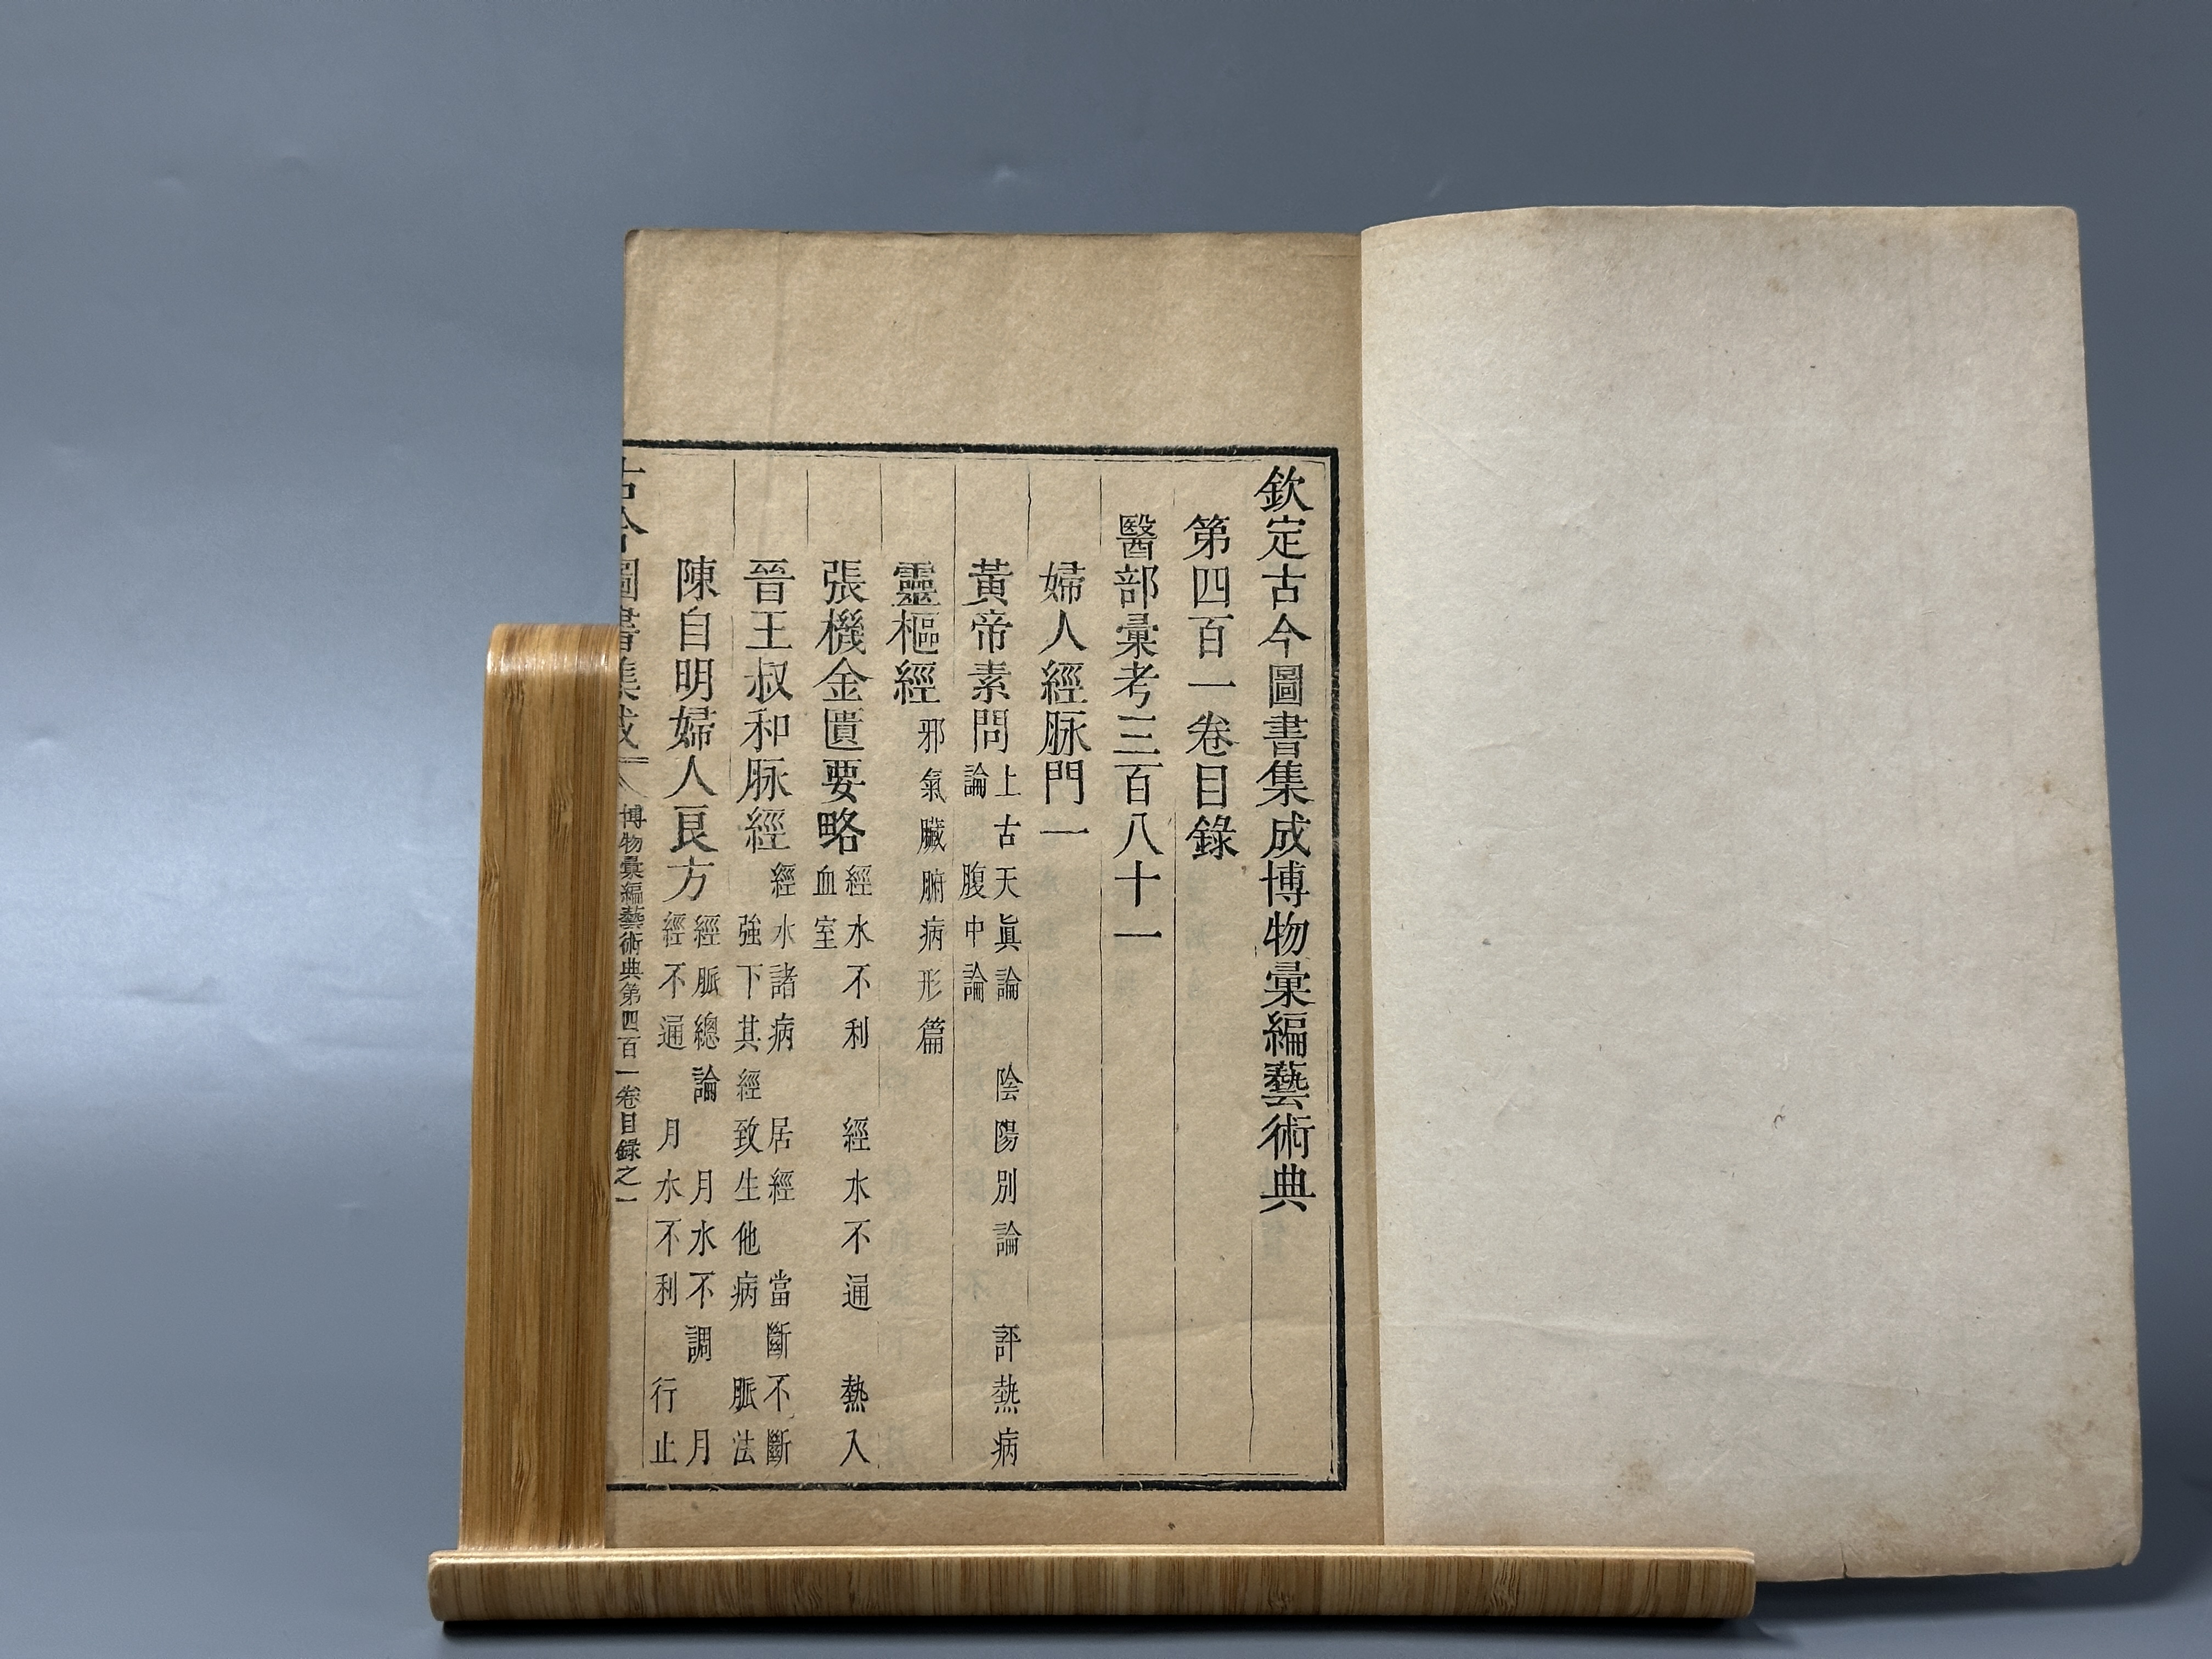 欽定古今圖書集成博物彙編藝術典
第四百一卷目錄
醫部彙考三百八十一
婦人經脉門一
黃帝素問 上古天眞論 陰陽別論 評熱病
論 腹中論
靈樞經 邪氣臟腑病形篇
張機金匱要略 經水不利 經水不通 熱入
血室
晉王叔和脉經 經水諸病 居經 當斷不斷
強下其經致生他病 脈法
陳自明婦人良方 經脈總論 月水不調 月
經不通 月水不利 行止
古今圖書集成 博物彙編藝術典第四百一卷目錄之一